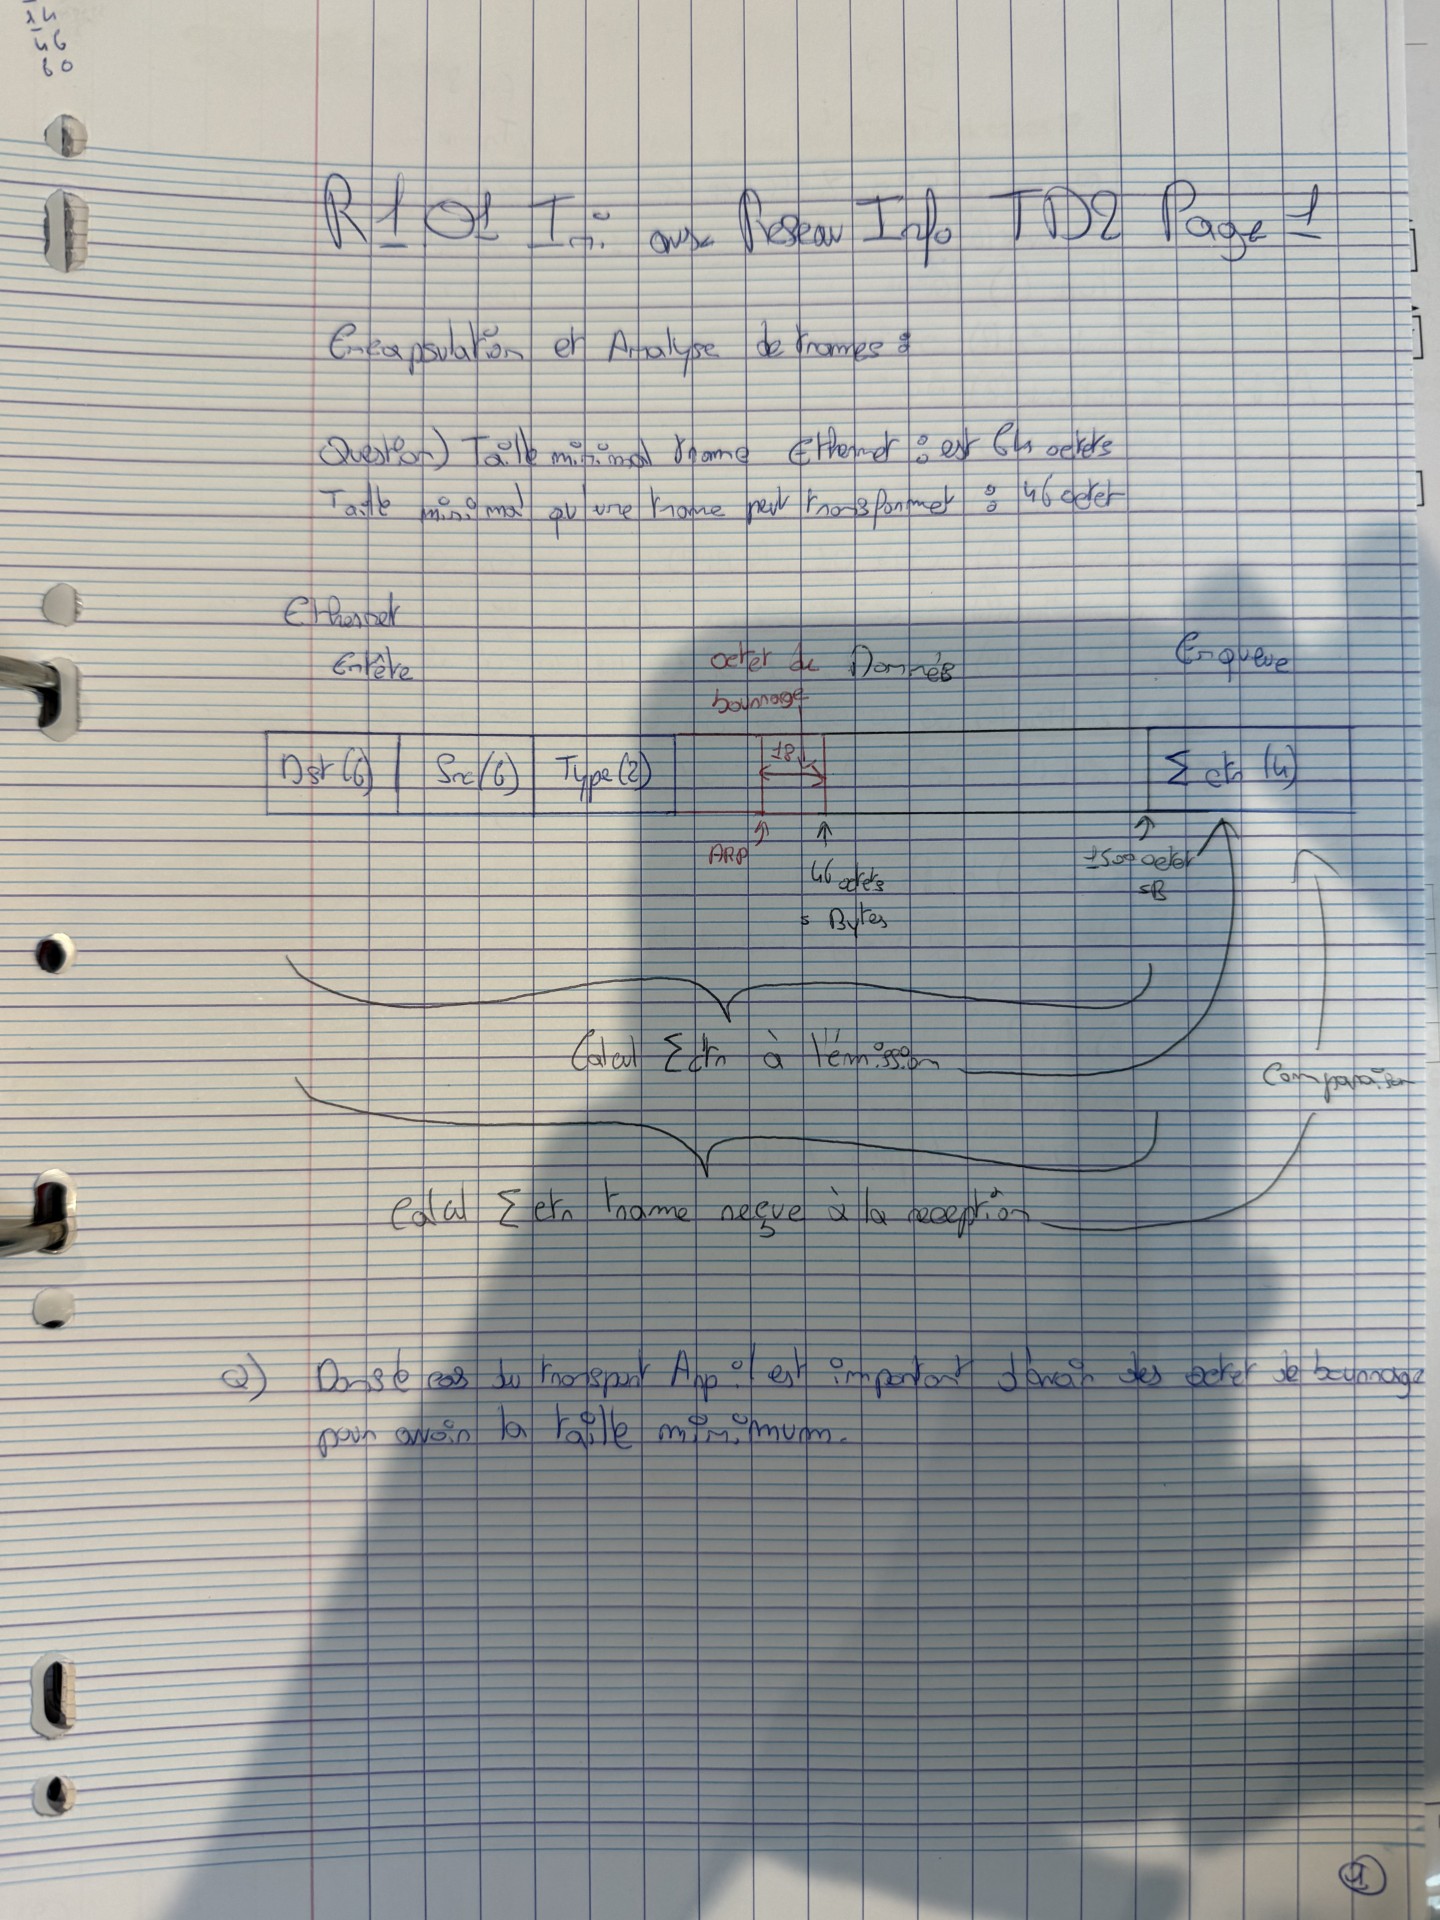 14
46
60
R1 01 Ini aux Reseau Info TD2 Page 1
Encapsulation et Analyse de trames :
Question) Taille minimal trame Ethernet : est 64 octets
Taille minimal qu'une trame peut transformet : 46 octet
Ethernet
Entête
octet de
bourrage
Donnés
Enqueue
Dst (6)
Src (6)
Type (2)
18
Σ ctr (4)
ARP
46 octets
= Bytes
1500 octet
=B
Calcul Σ ctr à l'émission
Comparaison
Calcul Σ ctr trame reçue à la reception
2) Dans le cas du transport Arp il est important d'avoir des octet de bourrage
pour avoir la taille minimum.
1